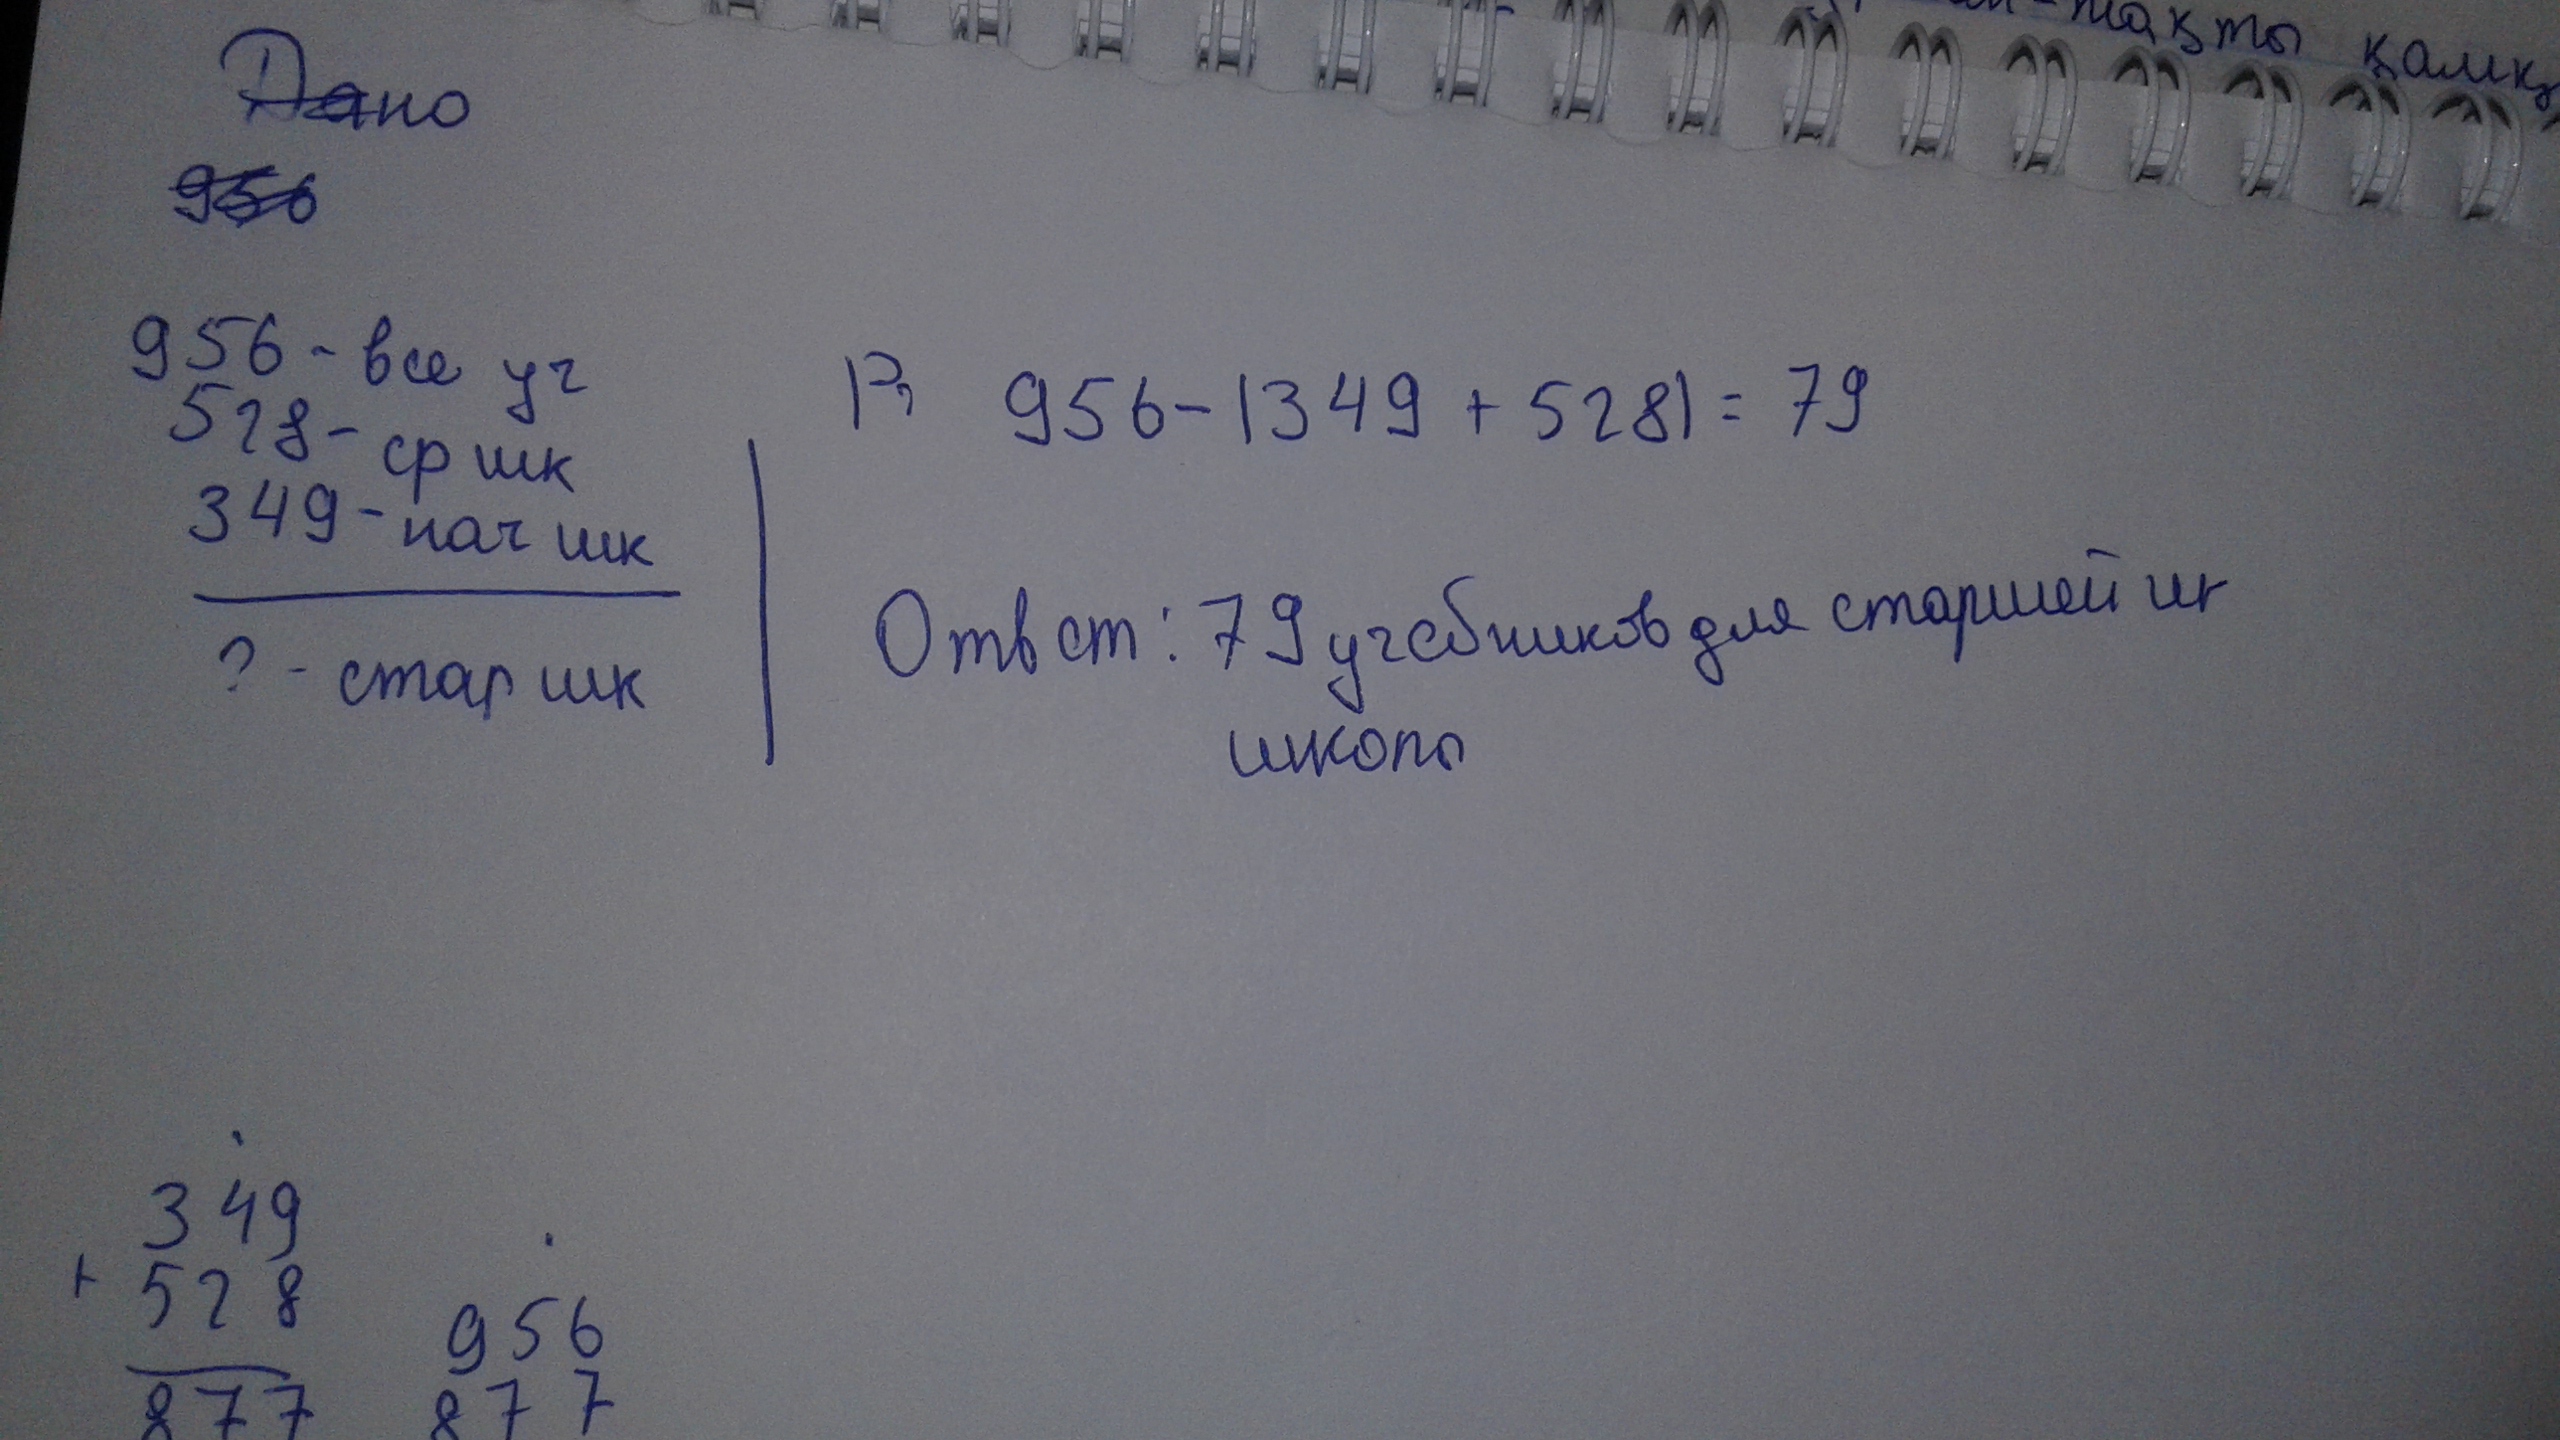 тақты
Дано
956
956 - все уч
528 - ср шк
349 - нач шк
? - стар шк
Р, 956 - (349 + 528) = 79
Ответ: 79 учебников для старшей шк
школы
349
+ 528
877
956
877